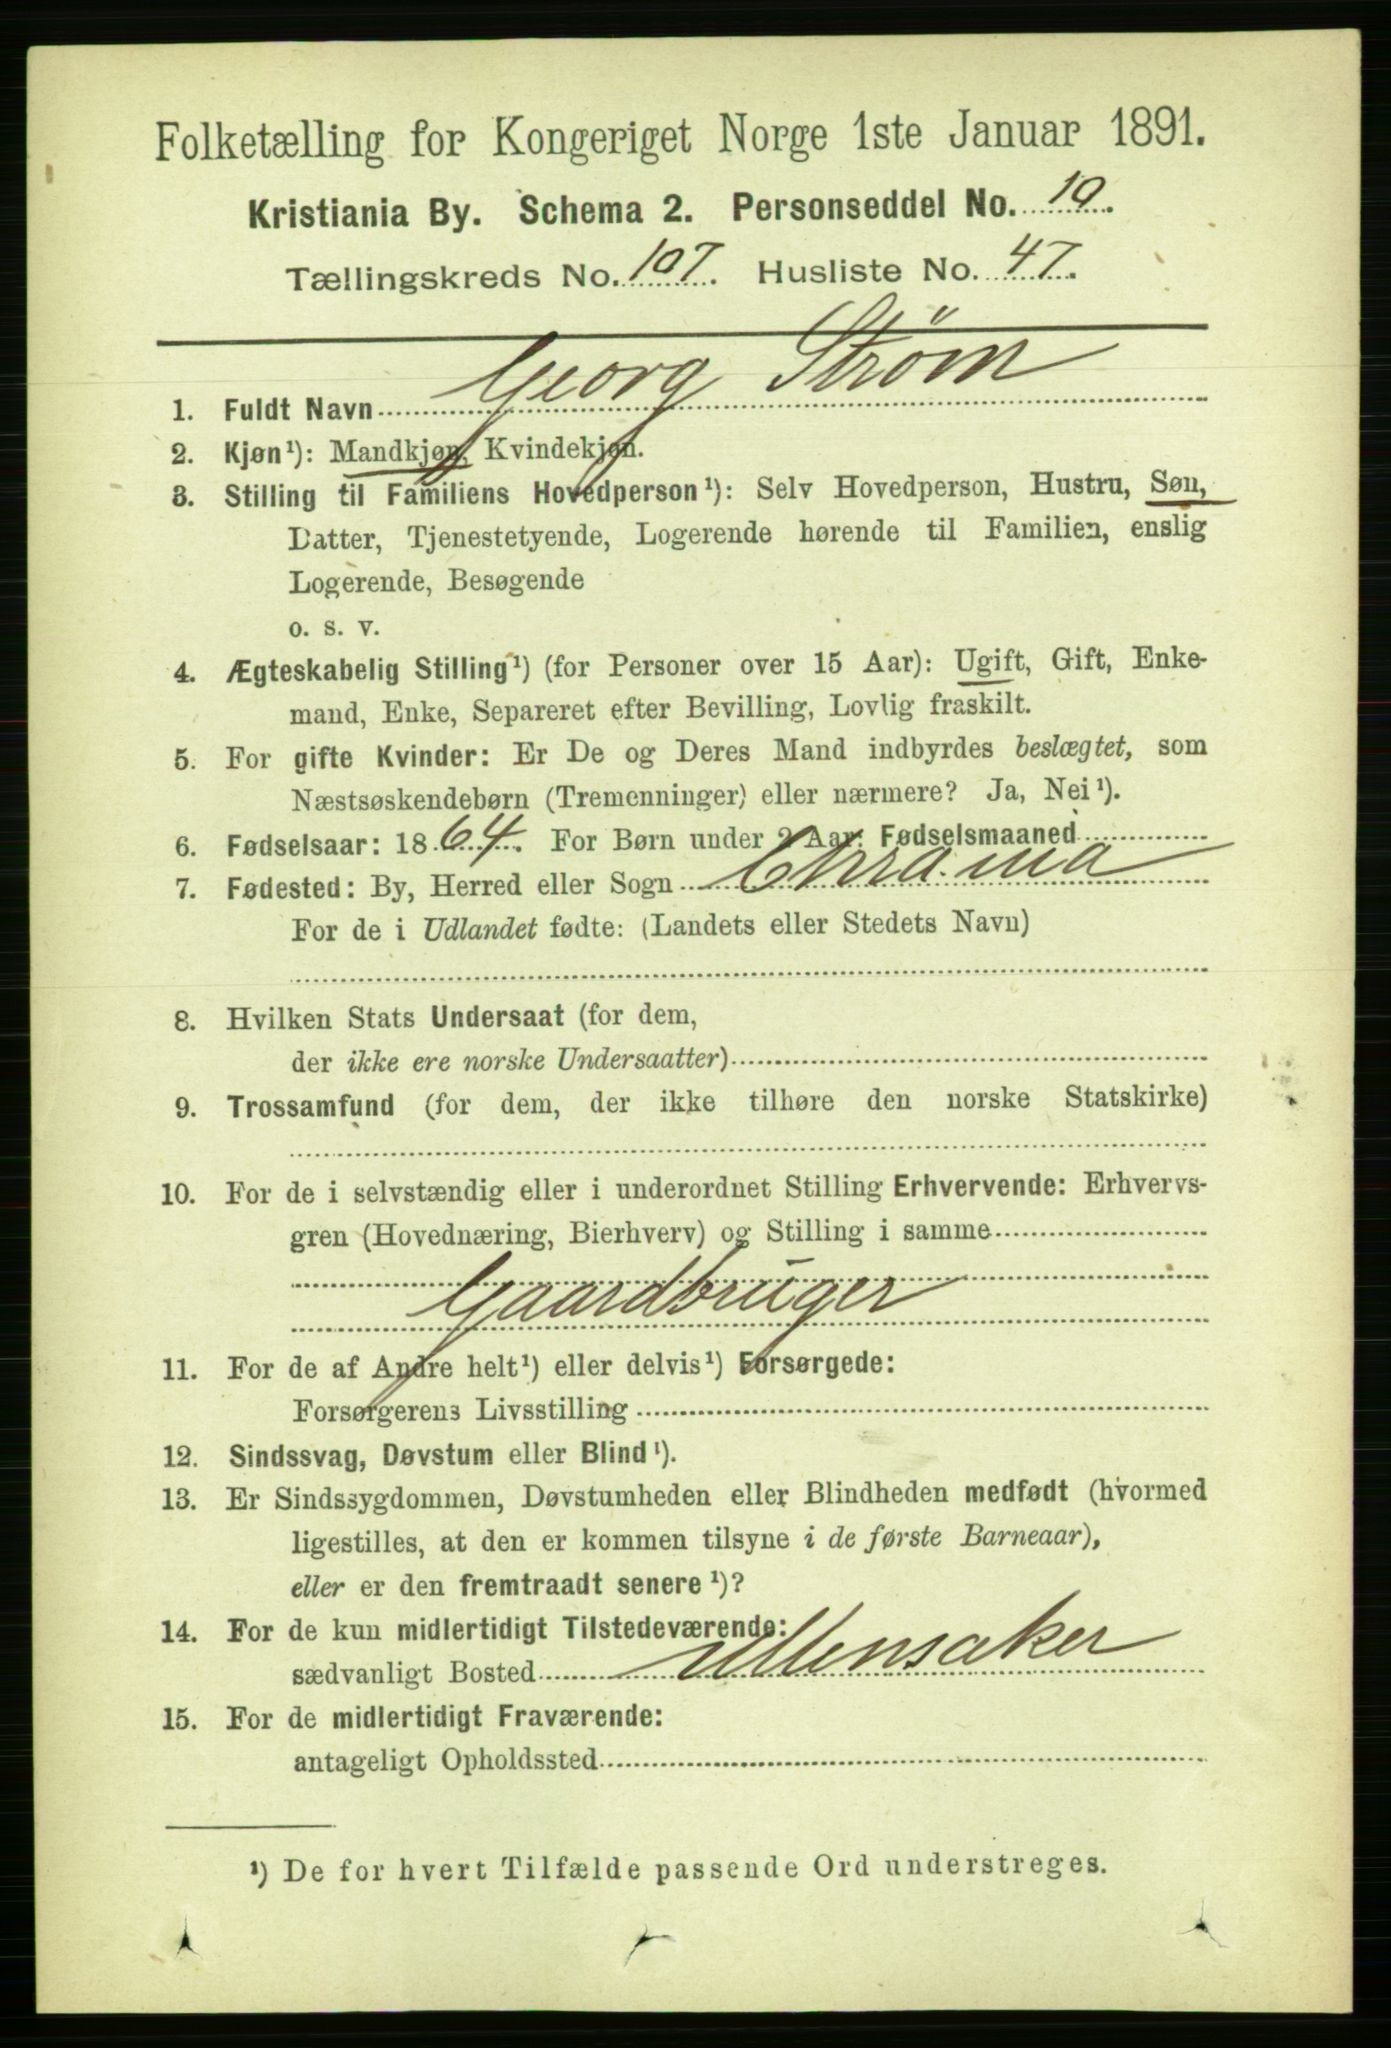 Folketælling for Kongeriget Norge 1ste Januar 1891.
Kristiania By. Schema 2. Personseddel No. 10.
Tællingskreds No. 107. Husliste No. 47.
1. Fuldt Navn Georg Strøm
2. Kjøn¹): Mandkjøn, Kvindekjøn.
3. Stilling til Familiens Hovedperson¹): Selv Hovedperson, Hustru, Søn,
Datter, Tjenestetyende, Logerende hørende til Familien, enslig
Logerende, Besøgende
o. s. v.
4. Ægteskabelig Stilling¹) (for Personer over 15 Aar): Ugift, Gift, Enke-
mand, Enke, Separeret efter Bevilling, Lovlig fraskilt.
5. For gifte Kvinder: Er De og Deres Mand indbyrdes beslægtet, som
Næstsøskendebørn (Tremenninger) eller nærmere? Ja, Nei¹).
6. Fødselsaar: 1864. For Børn under 2 Aar: Fødselsmaaned
7. Fødested: By, Herred eller Sogn Chra.nia
For de i Udlandet fødte: (Landets eller Stedets Navn)
8. Hvilken Stats Undersaat (for dem,
der ikke ere norske Undersaatter)
9. Trossamfund (for dem, der ikke tilhøre den norske Statskirke)
10. For de i selvstændig eller i underordnet Stilling Erhvervende: Erhvervs-
gren (Hovednæring, Bierhverv) og Stilling i samme
Gaardbruger
11. For de af Andre helt¹) eller delvis¹) Forsørgede:
Forsørgerens Livsstilling
12. Sindssvag, Døvstum eller Blind¹).
13. Er Sindssygdommen, Døvstumheden eller Blindheden medfødt (hvormed
ligestilles, at den er kommen tilsyne i de første Barneaar),
eller er den fremtraadt senere¹)?
14. For de kun midlertidigt Tilstedeværende:
sædvanligt Bosted Ullensaker
15. For de midlertidigt Fraværende:
antageligt Opholdssted
¹) De for hvert Tilfælde passende Ord understreges.